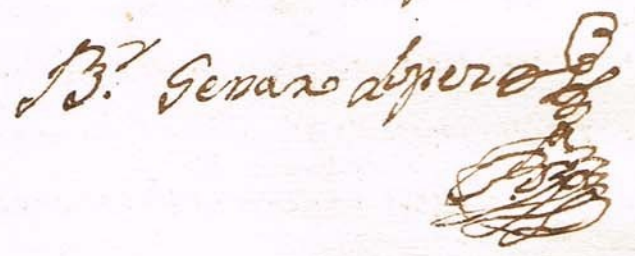 B.r Genaro lopez